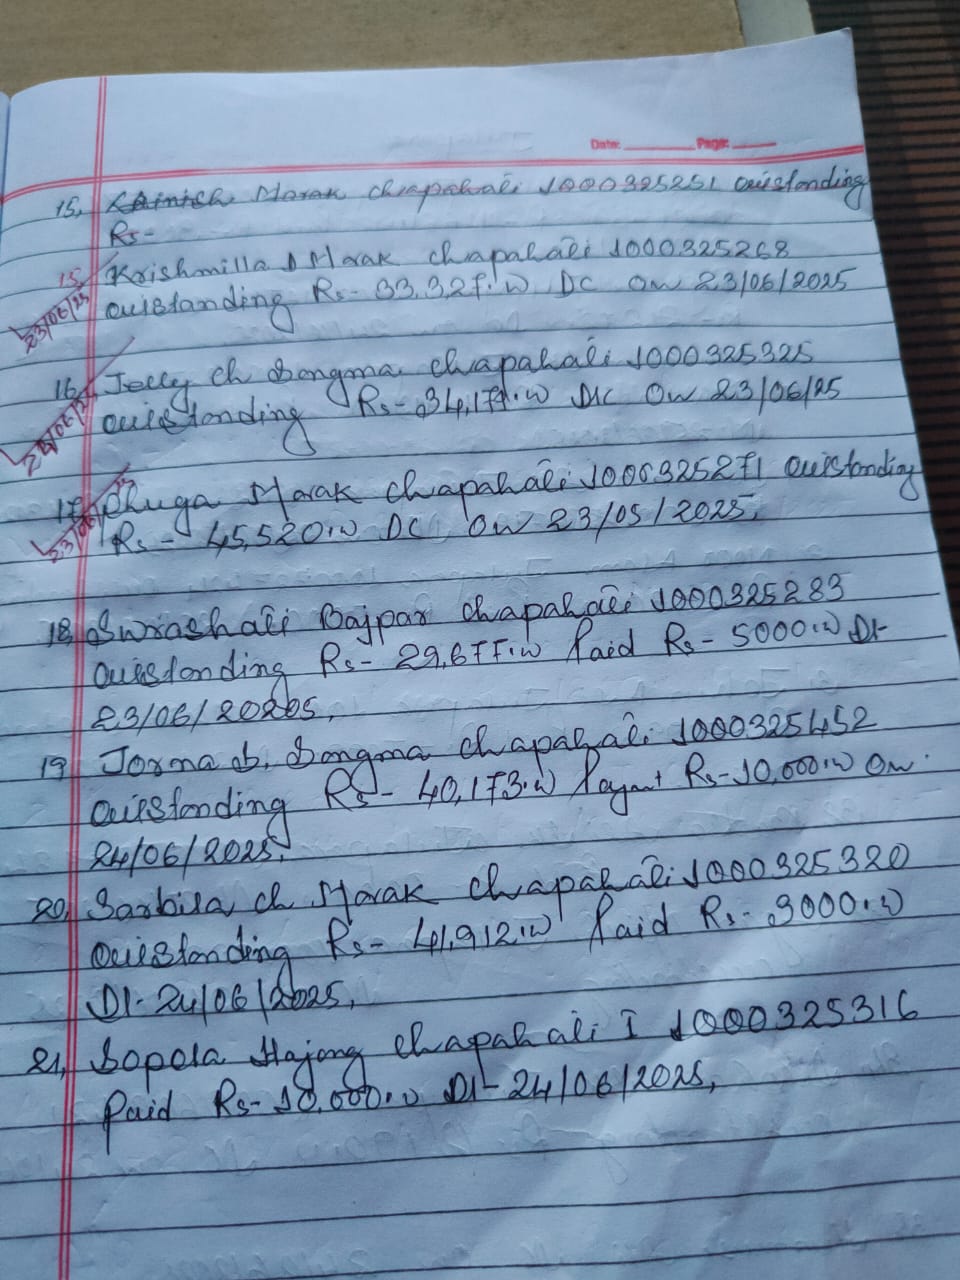 Date: Page:
15, Krinish Marak Chapahali 1000325251 Outstanding
Rs-
15, Krishmilla D Marak Chapahali 1000325268
Outstanding Rs- 33,327.00 DC On 23/06/2025
23/06/25
16, Jelly Ch Sangma Chapahali 1000325325
Outstanding Rs- 34,177.00 DC On 23/06/25
17, Marak Chapahali 1000325271 Outstanding
Rs- 45,520.00 DC On 23/05/2025,
18, Swrashati Bajpar Chapahali 1000325283
Outstanding Rs- 29,677.00 Paid Rs- 5000.00 Dt-
23/06/2025,
19, Jorma b. Sangma Chapahali 1000325452
Outstanding Rs- 40,173.00 Paymt Rs- 10,000.00 On
24/06/2025,
20, Sarbila Ch Marak Chapahali 1000325320
Outstanding Rs- 41,912.00 Paid Rs- 3000.00
Dt- 24/06/2025,
21, Sopola Hajong Chapahali I 1000325316
Paid Rs- 10,000.00 Dt- 24/06/2025,